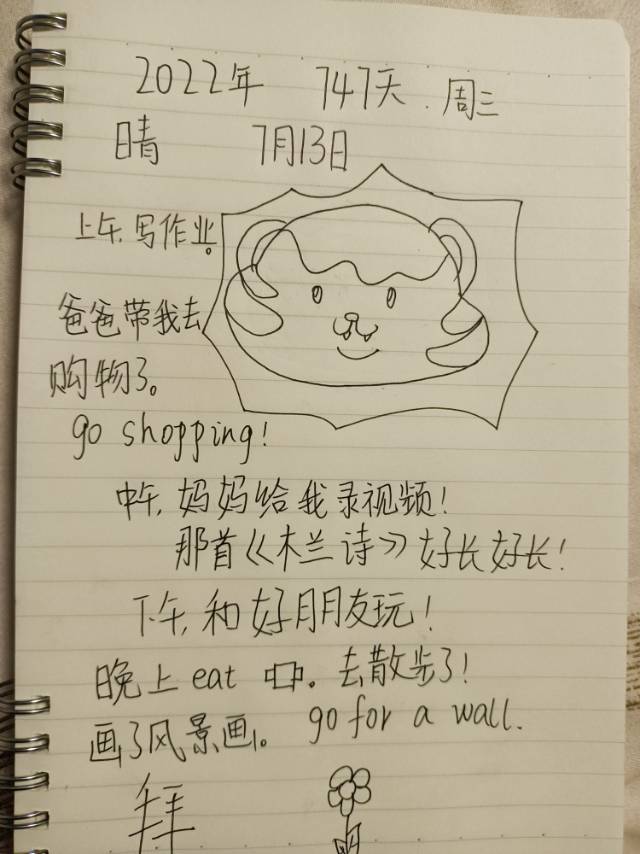 2022年 747天 周三
晴 7月13日
上午,写作业。
爸爸带我去
购物了。
go shopping!
中午,妈妈给我录视频!
那首《木兰诗》好长好长!
下午,和好朋友玩!
晚上 eat 中。去散步了!
画了风景画。 go for a wall.
拜